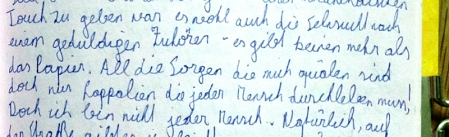 Touch zu geben war es wohl auch die Sehnsucht nach
einem geduldigen Zuhörer - es gibt keinen mehr als
das Papier. All die Sorgen die mich quälen sind
doch nur Lappalien die jeder Mensch durchleben muss!
Doch ich bin nicht jeder Mensch. Natürlich, auf
der Straße